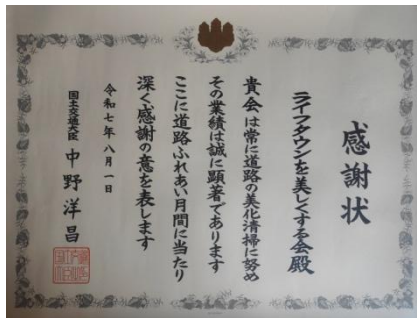 感謝状
ライフタウンを美しくする会殿
貴会は常に道路の美化清掃に努め
その業績は誠に顕著であります
ここに道路ふれあい月間に当たり
深く感謝の意を表します
令和七年八月一日
国土交通大臣 中野洋昌